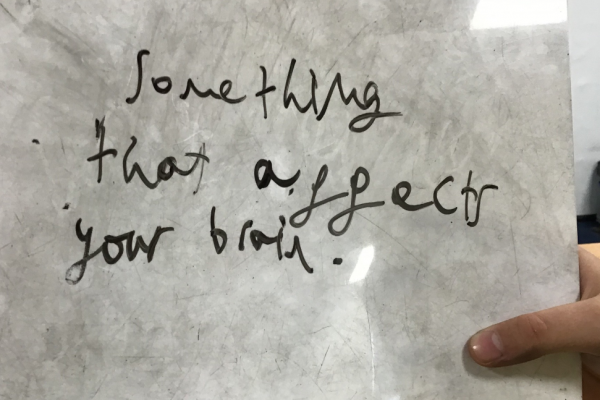 Something
that affects
your brain.